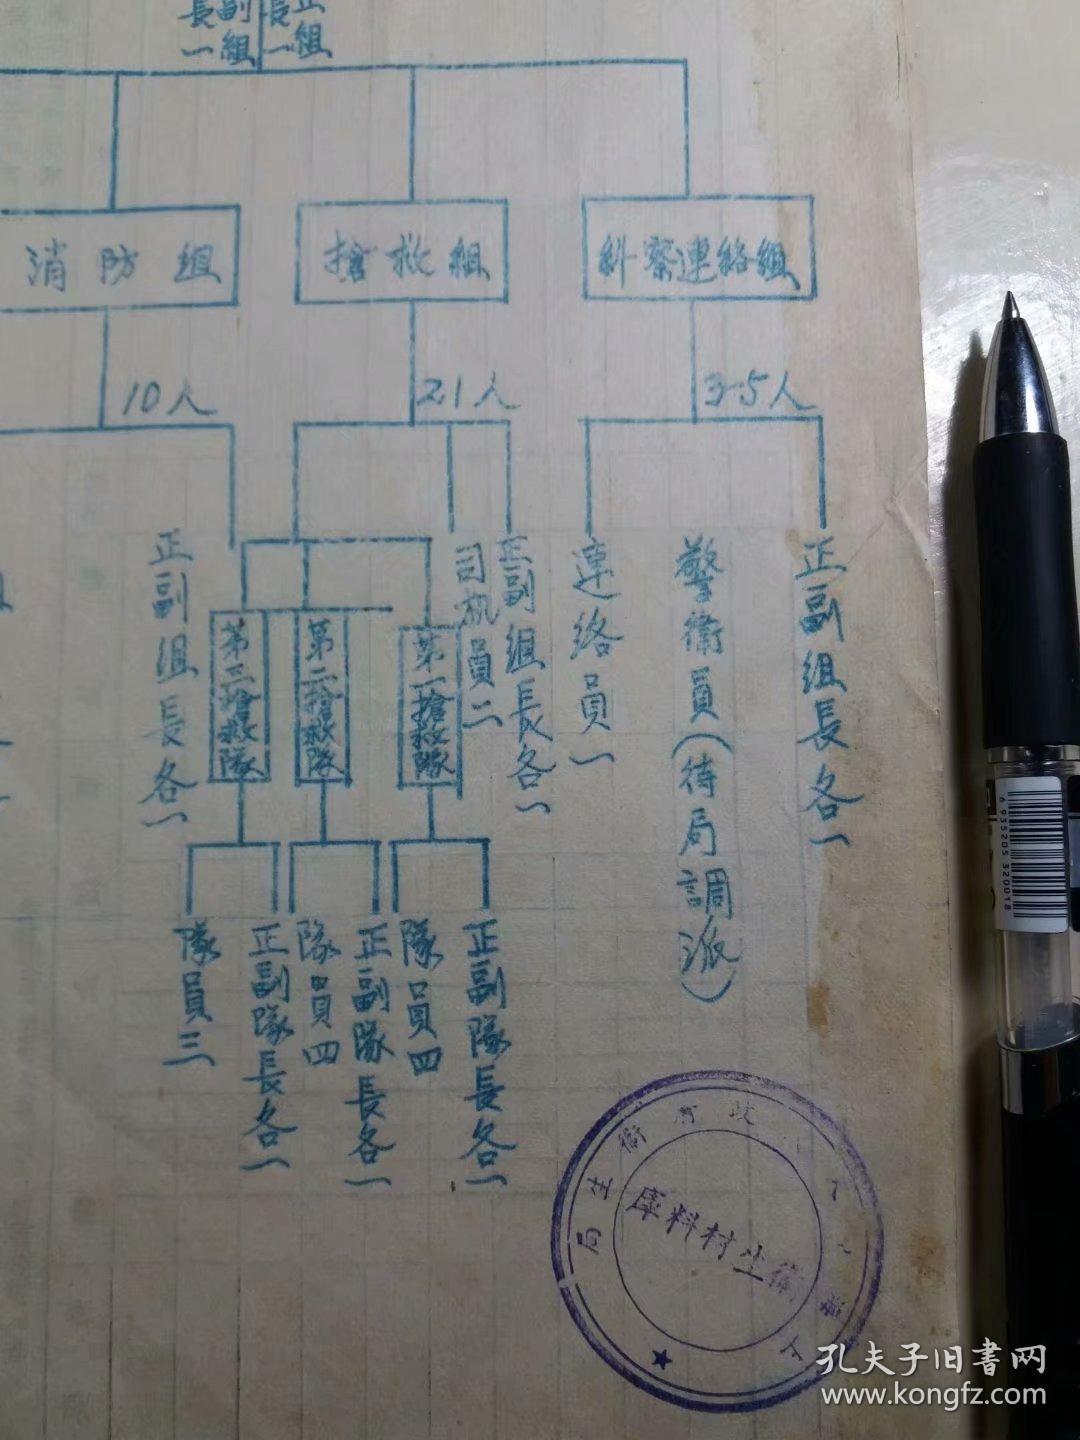 正組長一
副組長一
糾察連絡組
搶救組
消防組
3-5人
21人
10人
正副組長各一
警衛員(待局調派)
連絡員一
正副組長各一
司机員二
第一搶救隊
第二搶救隊
第三搶救隊
正副組長各一
正副隊長各一
隊員四
正副隊長各一
隊員四
正副隊長各一
隊員三
府衛生局
衛生材料庫
6 935205 320018
孔夫子旧書网
www.kongfz.com